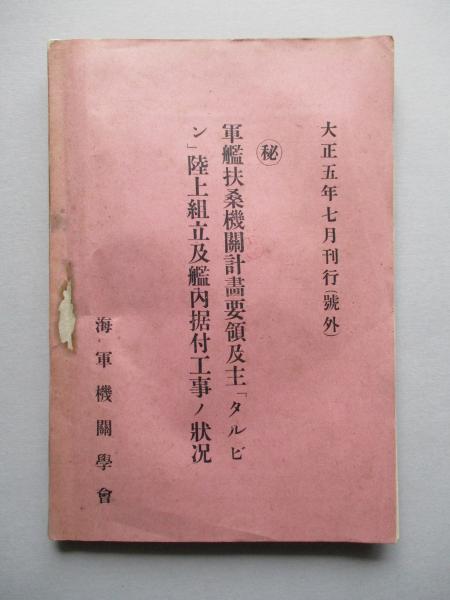 大正五年七月刊行(號外)
㊙
軍艦扶桑機關計畫要領及主「タルビ
ン」陸上組立及艦內据付工事ノ狀況
海軍機關學會